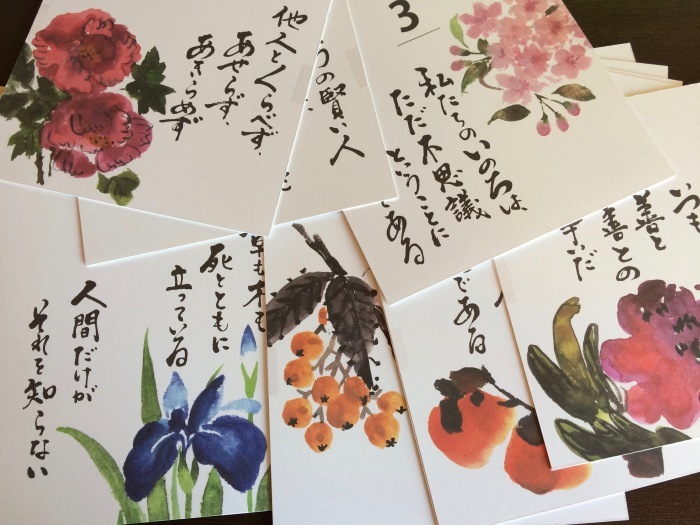 他人とくらべず、
あせらず、
あきらめず
うの賢い人
に
3
私たちのいのちは
ただ不思議
ということに
である
草も木も
死とともに
立っている
人間だけが
それを知らない
である
いつも
善と
善との
争いだ